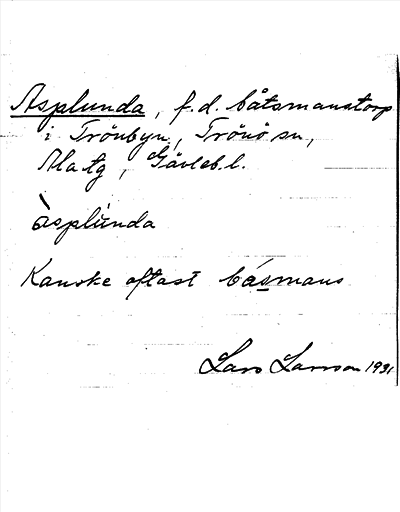 Asplunda, f.d. båtsmanstorp
i Trönbyn, Trönö sn,
Ala tg, Gävleb.l.
àsplúnda
Kanske oftast básmans
Lars Larsson 1931